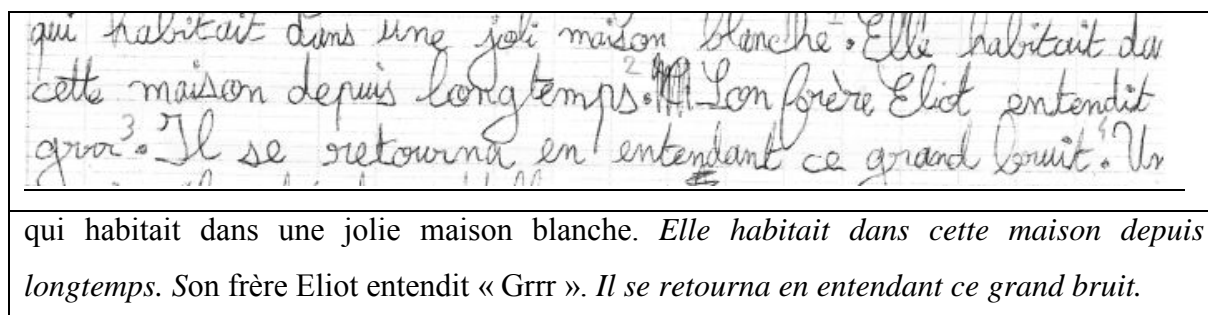 qui habitait dans une joli maison blanche. Elle habitait da
cette maison depuis longtemps. 2 Son frère Eliot entendit
grrr 3. Il se retourna en entendant ce grand bruit. 4 Un
qui habitait dans une jolie maison blanche. Elle habitait dans cette maison depuis
longtemps. Son frère Eliot entendit « Grrr ». Il se retourna en entendant ce grand bruit.